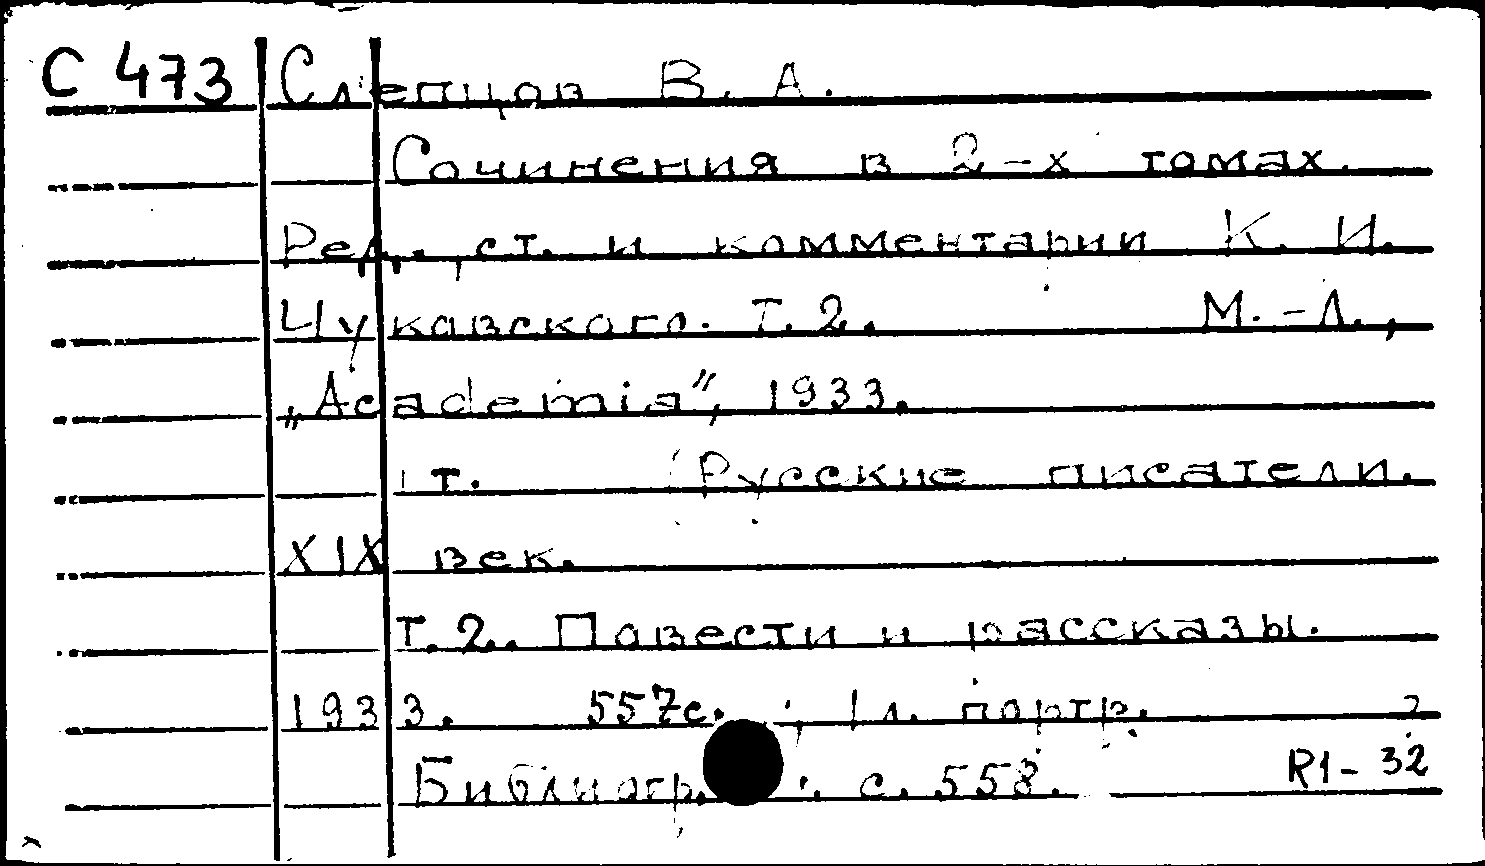 С 473 Слепцов В. А.
Сочинения в 2-х томах.
Ред., ст. и комментарии К. И.
Чукавского. Т. 2. М.-Л.,
„Academia”, 1933.
т. (Русские писатели.
XIX век.
Т. 2. Повести и рассказы.
1933. 557с. ; 1 л. портр.
Библиогр. : с. 558. R1-32